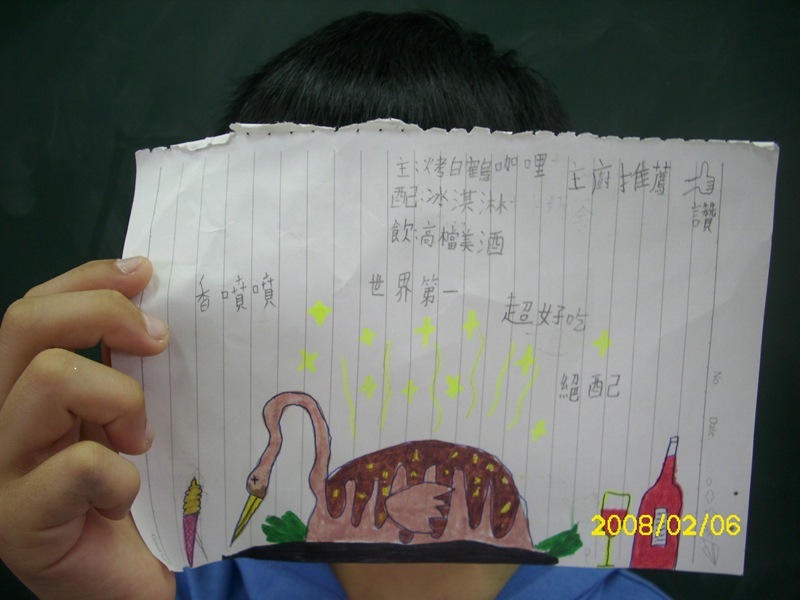 主:烤白鶴咖哩 主廚推薦
讚
配:冰淇淋
飲:高檔美酒
香噴噴
世界第一
超好吃
絕配
No
Date
2008/02/06